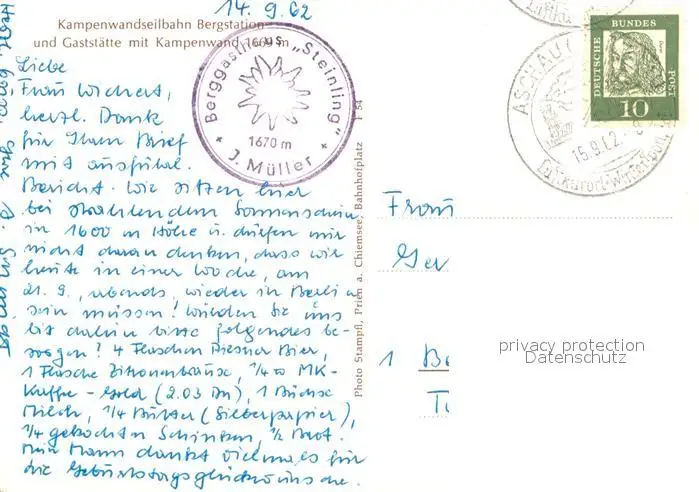 14.9.62
Kampenwandseilbahn Bergstation
und Gaststätte mit Kampenwand 1669 m
Liebe
Frau Wichert,
herzl. Dank
für Ihren Brief
mit ausführl.
Bericht. Wir sitzen hier
bei strahlendem Sonnenschein
in 1600 m Höhe u. dürfen nur
nicht daran denken, dass wir
heute in einer Woche, am
21. 9., abends, wieder in Berlin
sein müssen! Würden Sie uns
bis dahin bitte folgendes be-
sorgen? 4 Flaschen Bier,
1 Flasche Zitronenbrause, 1/4 MK-
Kaffee - Gold (2.03 Dm), 1 Büchse
Milch, 1/4 Butter (Silberpapier),
1/4 gekochten Schinken, 1/2 Brot.
Mein Mann dankt vielmals für
die Geburtstagsglückwünsche.
Berggasthaus „Steinling"
1670 m
J. Müller
Photo Stampfl, Prien a. Chiemsee, Bahnhofplatz
DEUTSCHE BUNDESPOST
Dürer
10
ASCHAU
15.9.62
Luftkurort-Wintersport
Frau
Ger
1 Be
privacy protection
Datenschutz